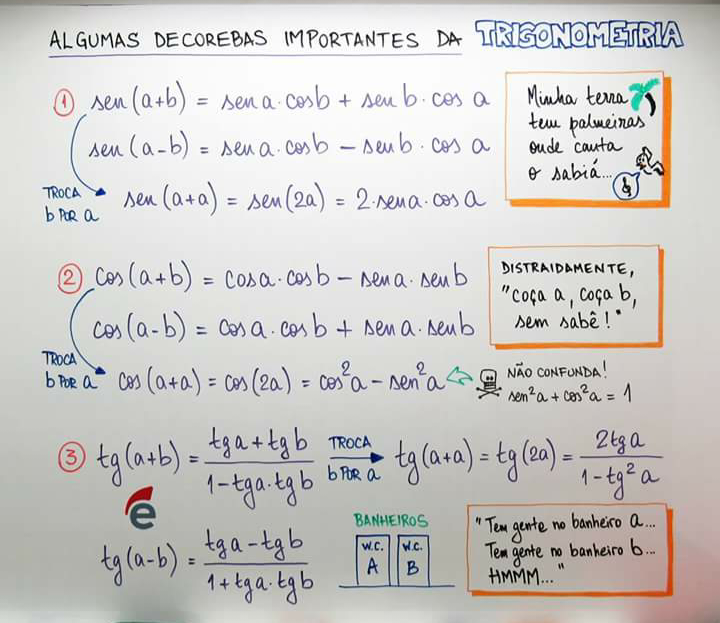 ALGUMAS DECOREBAS IMPORTANTES DA TRIGONOMETRIA
1 sen(a+b) = sen a · cos b + sen b · cos a
sen(a-b) = sen a · cos b - sen b · cos a
TROCA
b POR a
sen(a+a) = sen(2a) = 2·sen a · cos a
Minha terra
tem palmeiras
onde canta
o sabiá...
2 cos(a+b) = cos a · cos b - sen a · sen b
cos(a-b) = cos a · cos b + sen a · sen b
TROCA
b POR a
cos(a+a) = cos(2a) = cos²a - sen²a
DISTRAIDAMENTE,
"coça a, coça b,
sem sabê!"
NÃO CONFUNDA!
sen²a + cos²a = 1
3 tg(a+b) = (tg a + tg b) / (1 - tg a · tg b)
TROCA
b POR a
tg(a+a) = tg(2a) = 2tg a / (1 - tg² a)
e
tg(a-b) = (tg a - tg b) / (1 + tg a · tg b)
BANHEIROS
W.C. W.C.
A B
"Tem gente no banheiro a...
Tem gente no banheiro b...
HMMM..."